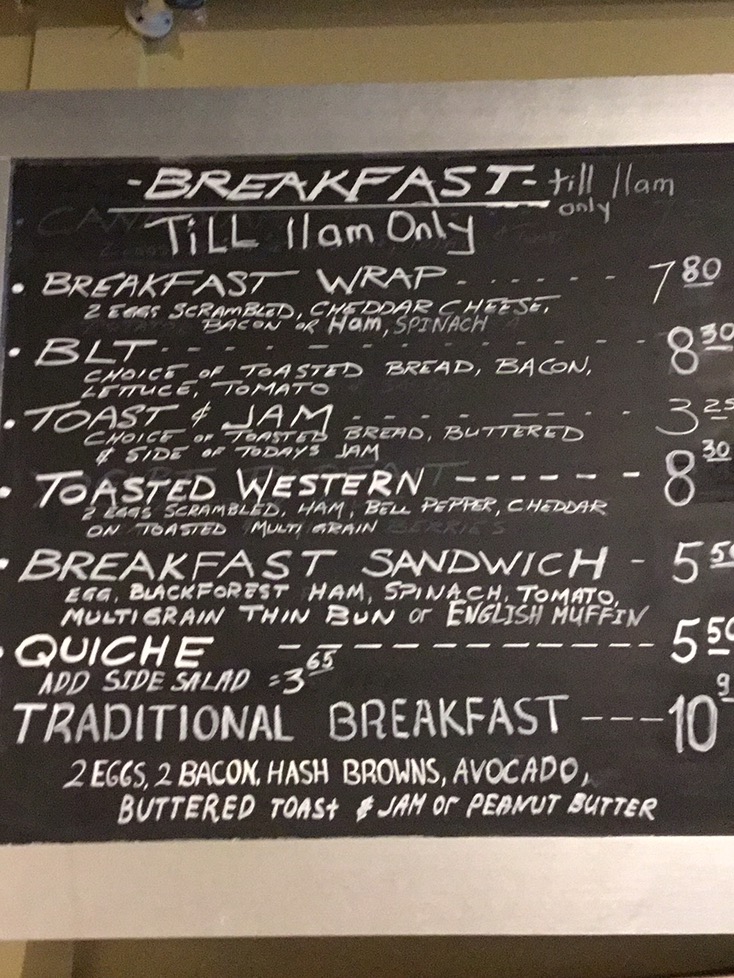 -BREAKFAST- till 11am
only
TiLL 11am Only
• BREAKFAST WRAP - - - - - - 7 80
2 EGGS SCRAMBLED, CHEDDAR CHEESE,
BACON OR Ham, SPINACH
• BLT - - - - - - - - - - - 8 30
CHOICE OF TOASTED BREAD, BACON,
LETTUCE, TOMATO
• TOAST & JAM - - - - - - - - 3 25
CHOICE OF TOASTED BREAD, BUTTERED
& SIDE OF TODAYS JAM
• TOASTED WESTERN - - - - - - 8 30
2 EGGS SCRAMBLED, HAM, BELL PEPPER, CHEDDAR
ON TOASTED MULTI GRAIN
• BREAKFAST SANDWICH - 5 50
EGG, BLACKFOREST HAM, SPINACH, TOMATO,
MULTIGRAIN THIN BUN or ENGLISH MUFFIN
• QUICHE - - - - - - - - - - - - 5 50
ADD SIDE SALAD = 3 65
TRADITIONAL BREAKFAST - - - 10
2 EGGS, 2 BACON, HASH BROWNS, AVOCADO,
BUTTERED TOAST & JAM or PEANUT BUTTER